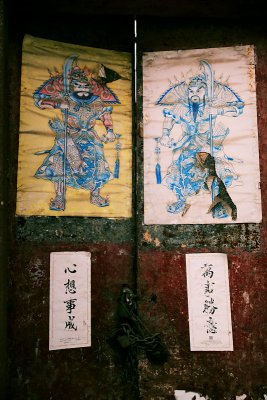 萬事勝意
心想事成